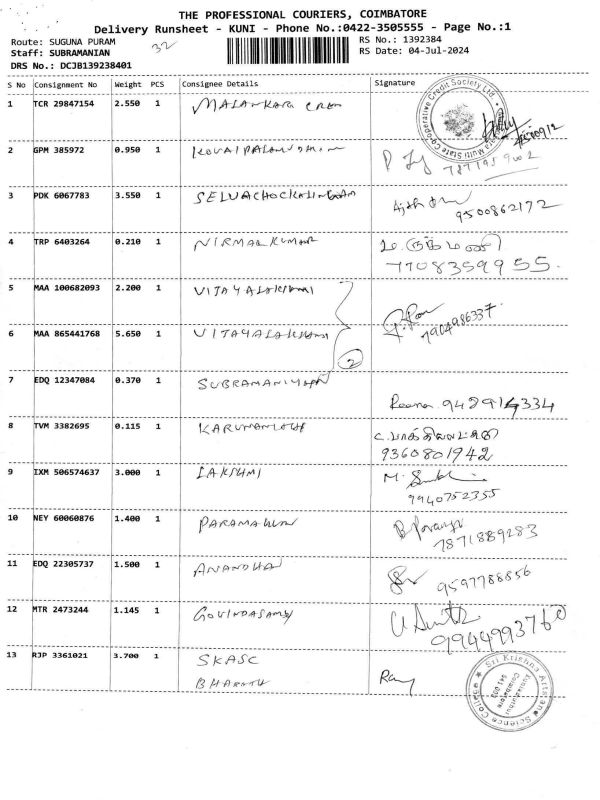 THE PROFESSIONAL COURIERS, COIMBATORE
Delivery Runsheet - KUNI - Phone No.:0422-3505555 - Page No.:1
Route: SUGUNA PURAM
32
RS No.: 1392384
Staff: SUBRAMANIAN
RS Date: 04-Jul-2024
DRS No.: DCJB139238401
S No Consignment No Weight PCS Consignee Details Signature
1 TCR 29847154 2.550 1 MALANKARA CREDI
Co-operative Credit Society Ltd.
Multi State
2 GPM 385972 0.950 1
7871959002
3 PDK 6067783 3.550 1 SELVACHOCKALINGAM
9500862172
4 TRP 6403264 0.210 1 NIRMALKUMAR
7708359955
5 MAA 100682093 2.200 1 VIJAYALAKSHMI
7904986337
6 MAA 865441768 5.650 1 VIJAYALAKSHMI
2
7 EDQ 12347084 0.370 1 SUBRAMANIYAN
Reena 942914334
8 TVM 3382695 0.115 1
9360801942
9 IXM 506574637 3.000 1 LAKSHMI
M.
9940752355
10 NEY 60060876 1.400 1
7871889283
11 EDQ 22305737 1.500 1 ANANDHAN
9597788856
12 MTR 2473244 1.145 1 GOVINDASAMY
9944993760
13 RJP 3361021 3.700 1 SKASC
BHARATH
Sri Krishna Arts and Science College
Kuniamuthur
Coimbatore
641 008